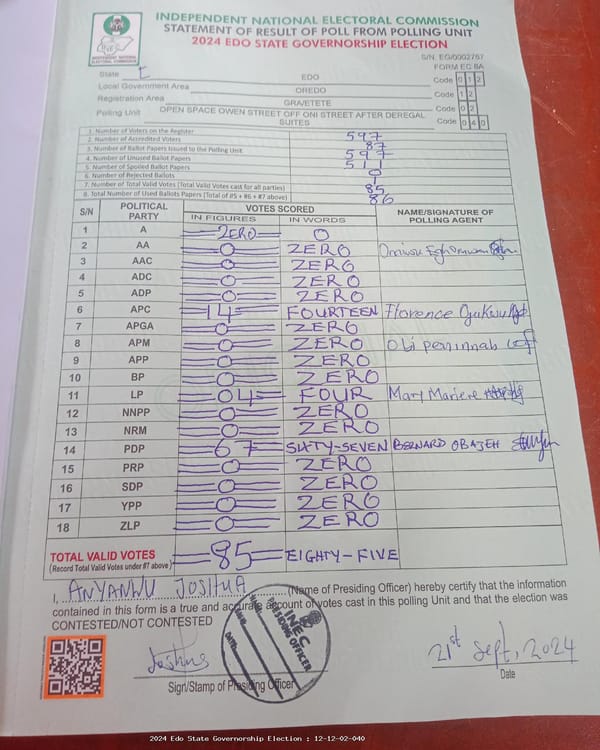 INDEPENDENT NATIONAL ELECTORAL COMMISSION
STATEMENT OF RESULT OF POLL FROM POLLING UNIT
2024 EDO STATE GOVERNORSHIP ELECTION
INEC
INDEPENDENT NATIONAL ELECTORAL COMMISSION
S/N. EG/0002757
FORM EC 8A
State E EDO Code 0 1 2
Local Government Area OREDO Code 1 2
Registration Area GRA/ETETE Code 0 2
Polling Unit OPEN SPACE OWEN STREET OFF ONI STREET AFTER DEREGAL SUITES Code 0 4 0
1. Number of Voters on the Register 597
2. Number of Accredited Voters 87
3. Number of Ballot Papers Issued to the Polling Unit 597
4. Number of Unused Ballot Papers 511
5. Number of Spoiled Ballot Papers 0
6. Number of Rejected Ballots 1
7. Number of Total Valid Votes (Total Valid Votes cast for all parties) 85
8. Total Number of Used Ballots Papers (Total of #5 + #6 + #7 above) 86
S/N POLITICAL PARTY VOTES SCORED NAME/SIGNATURE OF POLLING AGENT
IN FIGURES IN WORDS
1 A ZERO 0
2 AA 0 ZERO
3 AAC 0 ZERO
4 ADC 0 ZERO
5 ADP 0 ZERO
6 APC 14 FOURTEEN Florence
7 APGA 0 ZERO
8 APM 0 ZERO Obi peninnah
9 APP 0 ZERO
10 BP 0 ZERO
11 LP 04 FOUR Mary Mariere
12 NNPP 0 ZERO
13 NRM 0 ZERO
14 PDP 67 SIXTY-SEVEN BERNARD OBAJEH
15 PRP 0 ZERO
16 SDP 0 ZERO
17 YPP 0 ZERO
18 ZLP 0 ZERO
TOTAL VALID VOTES 85 EIGHTY-FIVE
(Record Total Valid Votes under #7 above)
I, ANYANWU JOSHUA (Name of Presiding Officer) hereby certify that the information
contained in this form is a true and accurate account of votes cast in this polling Unit and that the election was
CONTESTED/NOT CONTESTED
INEC
PRESIDING OFFICER
DATE
Joshua
Sign/Stamp of Presiding Officer
21st Sept, 2024
Date
2024 Edo State Governorship Election : 12-12-02-040